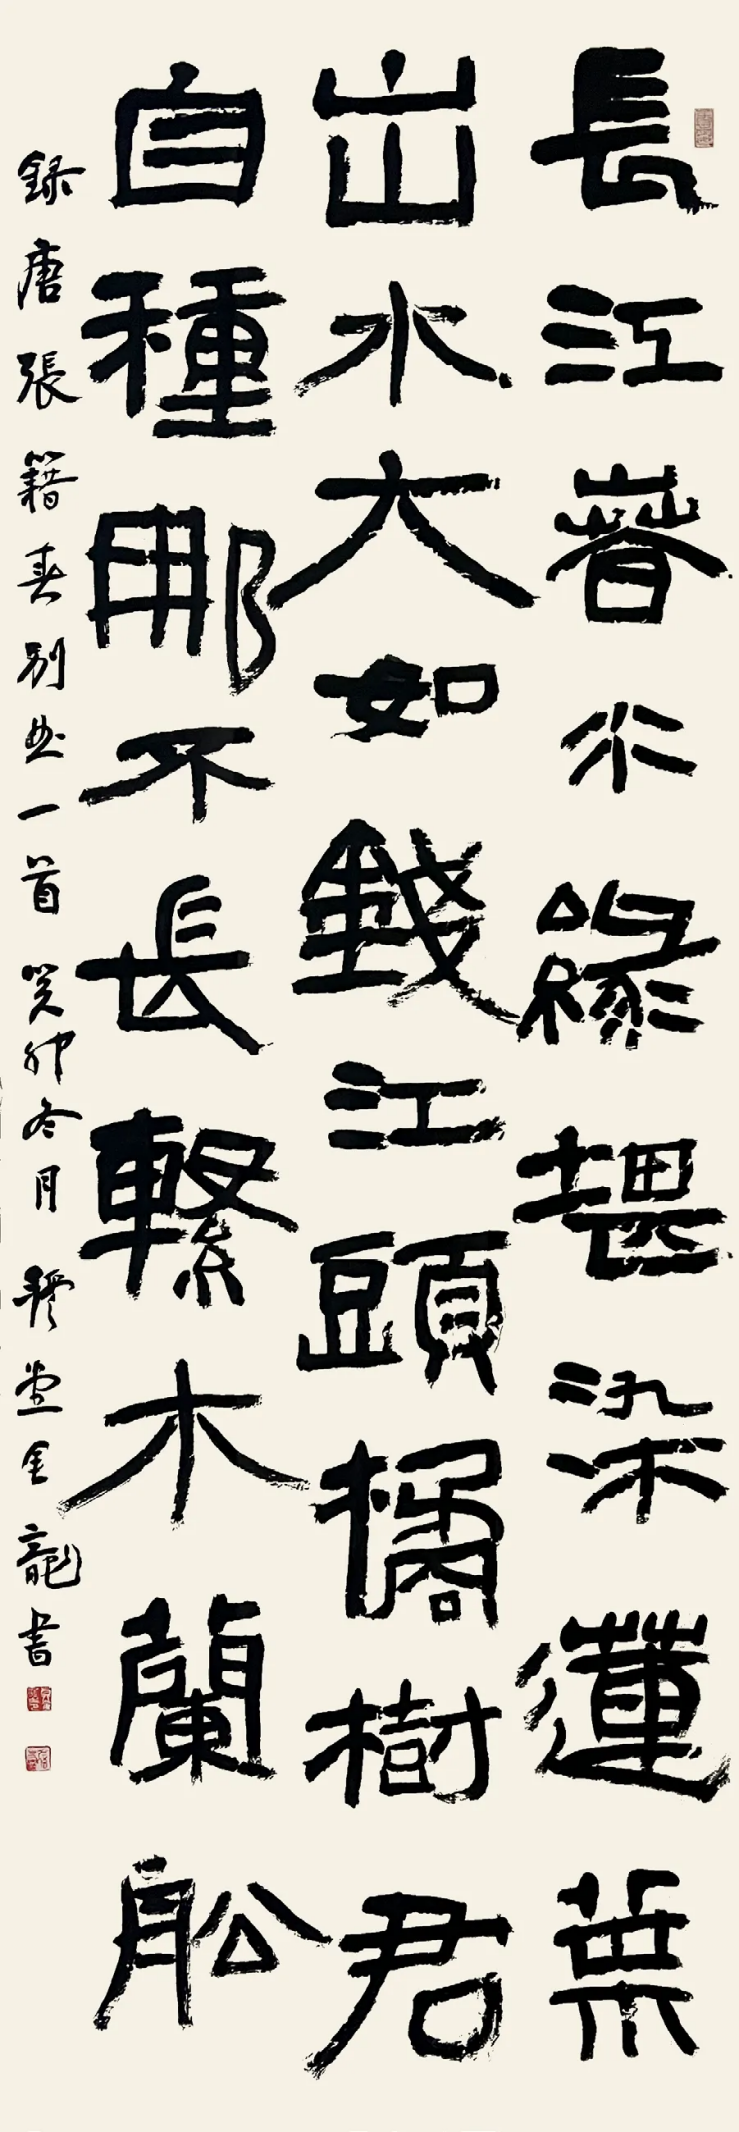 長江春水綠堪染蓮葉
出水大如錢江頭橘樹君
自種那不長繫木蘭舩
録唐張籍春别曲一首癸卯冬月穆堂金龍書